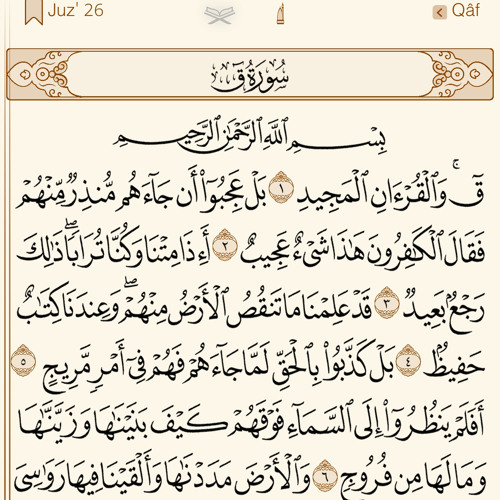 Juz' 26 Qâf
سُورَةُ قٓ
بِسْمِ ٱللَّهِ ٱلرَّحْمَٰنِ ٱلرَّحِيمِ
قٓ ۚ وَٱلْقُرْءَانِ ٱلْمَجِيدِ ١ بَلْ عَجِبُوٓا۟ أَن جَآءَهُم مُّنذِرٌ مِّنْهُمْ
فَقَالَ ٱلْكَٰفِرُونَ هَٰذَا شَىْءٌ عَجِيبٌ ٢ أَءِذَا مِتْنَا وَكُنَّا تُرَابًا ۖ ذَٰلِكَ
رَجْعٌۢ بَعِيدٌ ٣ قَدْ عَلِمْنَا مَا تَنقُصُ ٱلْأَرْضُ مِنْهُمْ ۖ وَعِندَنَا كِتَٰبٌ
حَفِيظٌۢ ٤ بَلْ كَذَّبُوا۟ بِٱلْحَقِّ لَمَّا جَآءَهُمْ فَهُمْ فِىٓ أَمْرٍ مَّرِيجٍ ٥
أَفَلَمْ يَنظُرُوٓا۟ إِلَى ٱلسَّمَآءِ فَوْقَهُمْ كَيْفَ بَنَيْنَٰهَا وَزَيَّنَّٰهَا
وَمَا لَهَا مِن فُرُوجٍ ٦ وَٱلْأَرْضَ مَدَدْنَٰهَا وَأَلْقَيْنَا فِيهَا رَوَٰسِىَ